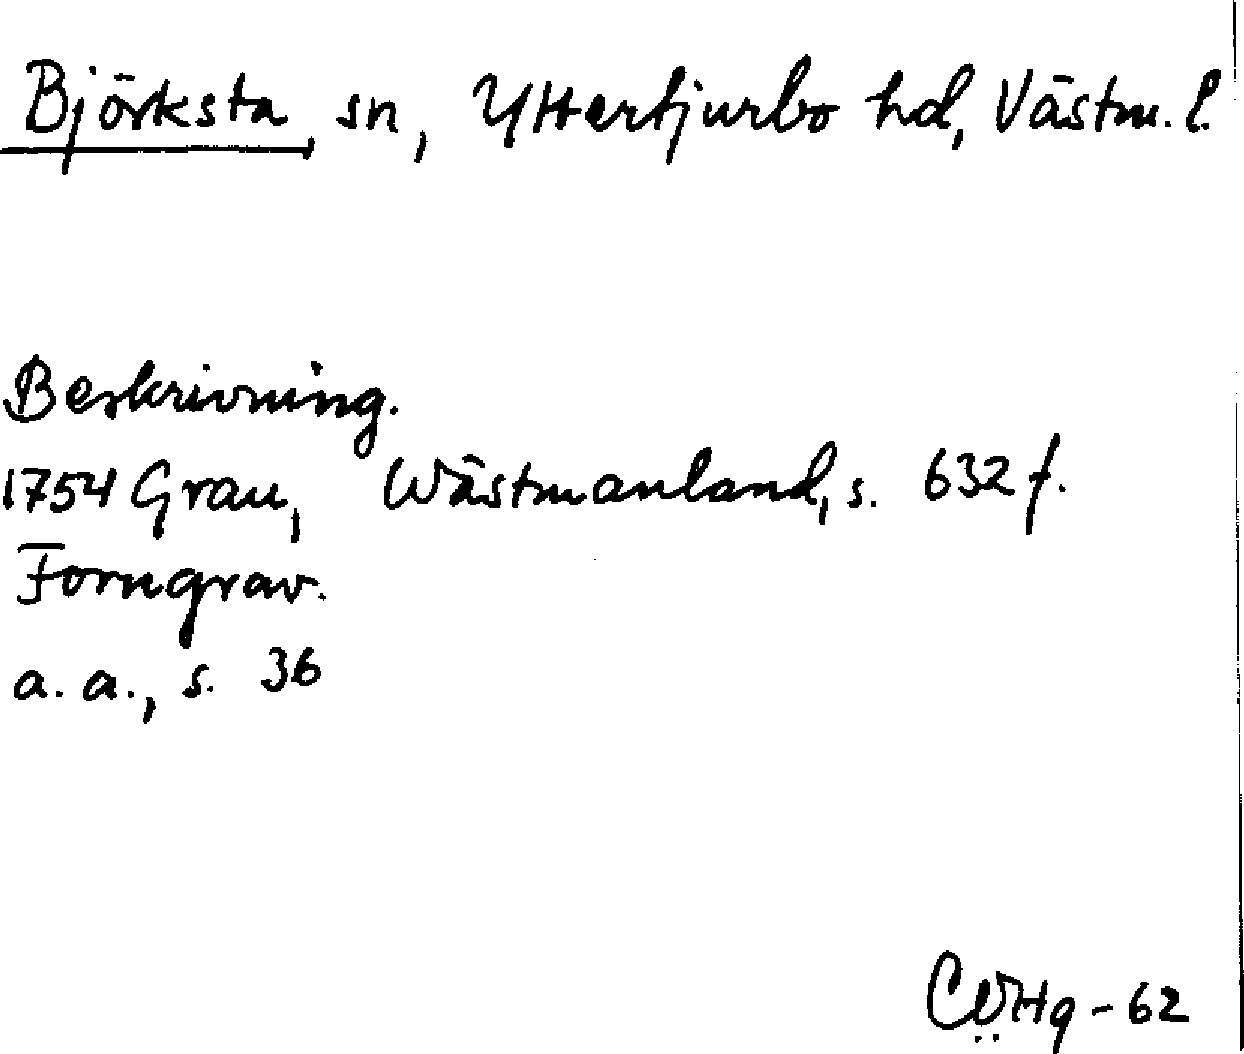 Björksta, sn, Yttertjurbo hd, Västm. l.
Beskrivning.
1754 Grau, Wästmanland, s. 632 f.
Forngrav.
a. a., s. 36